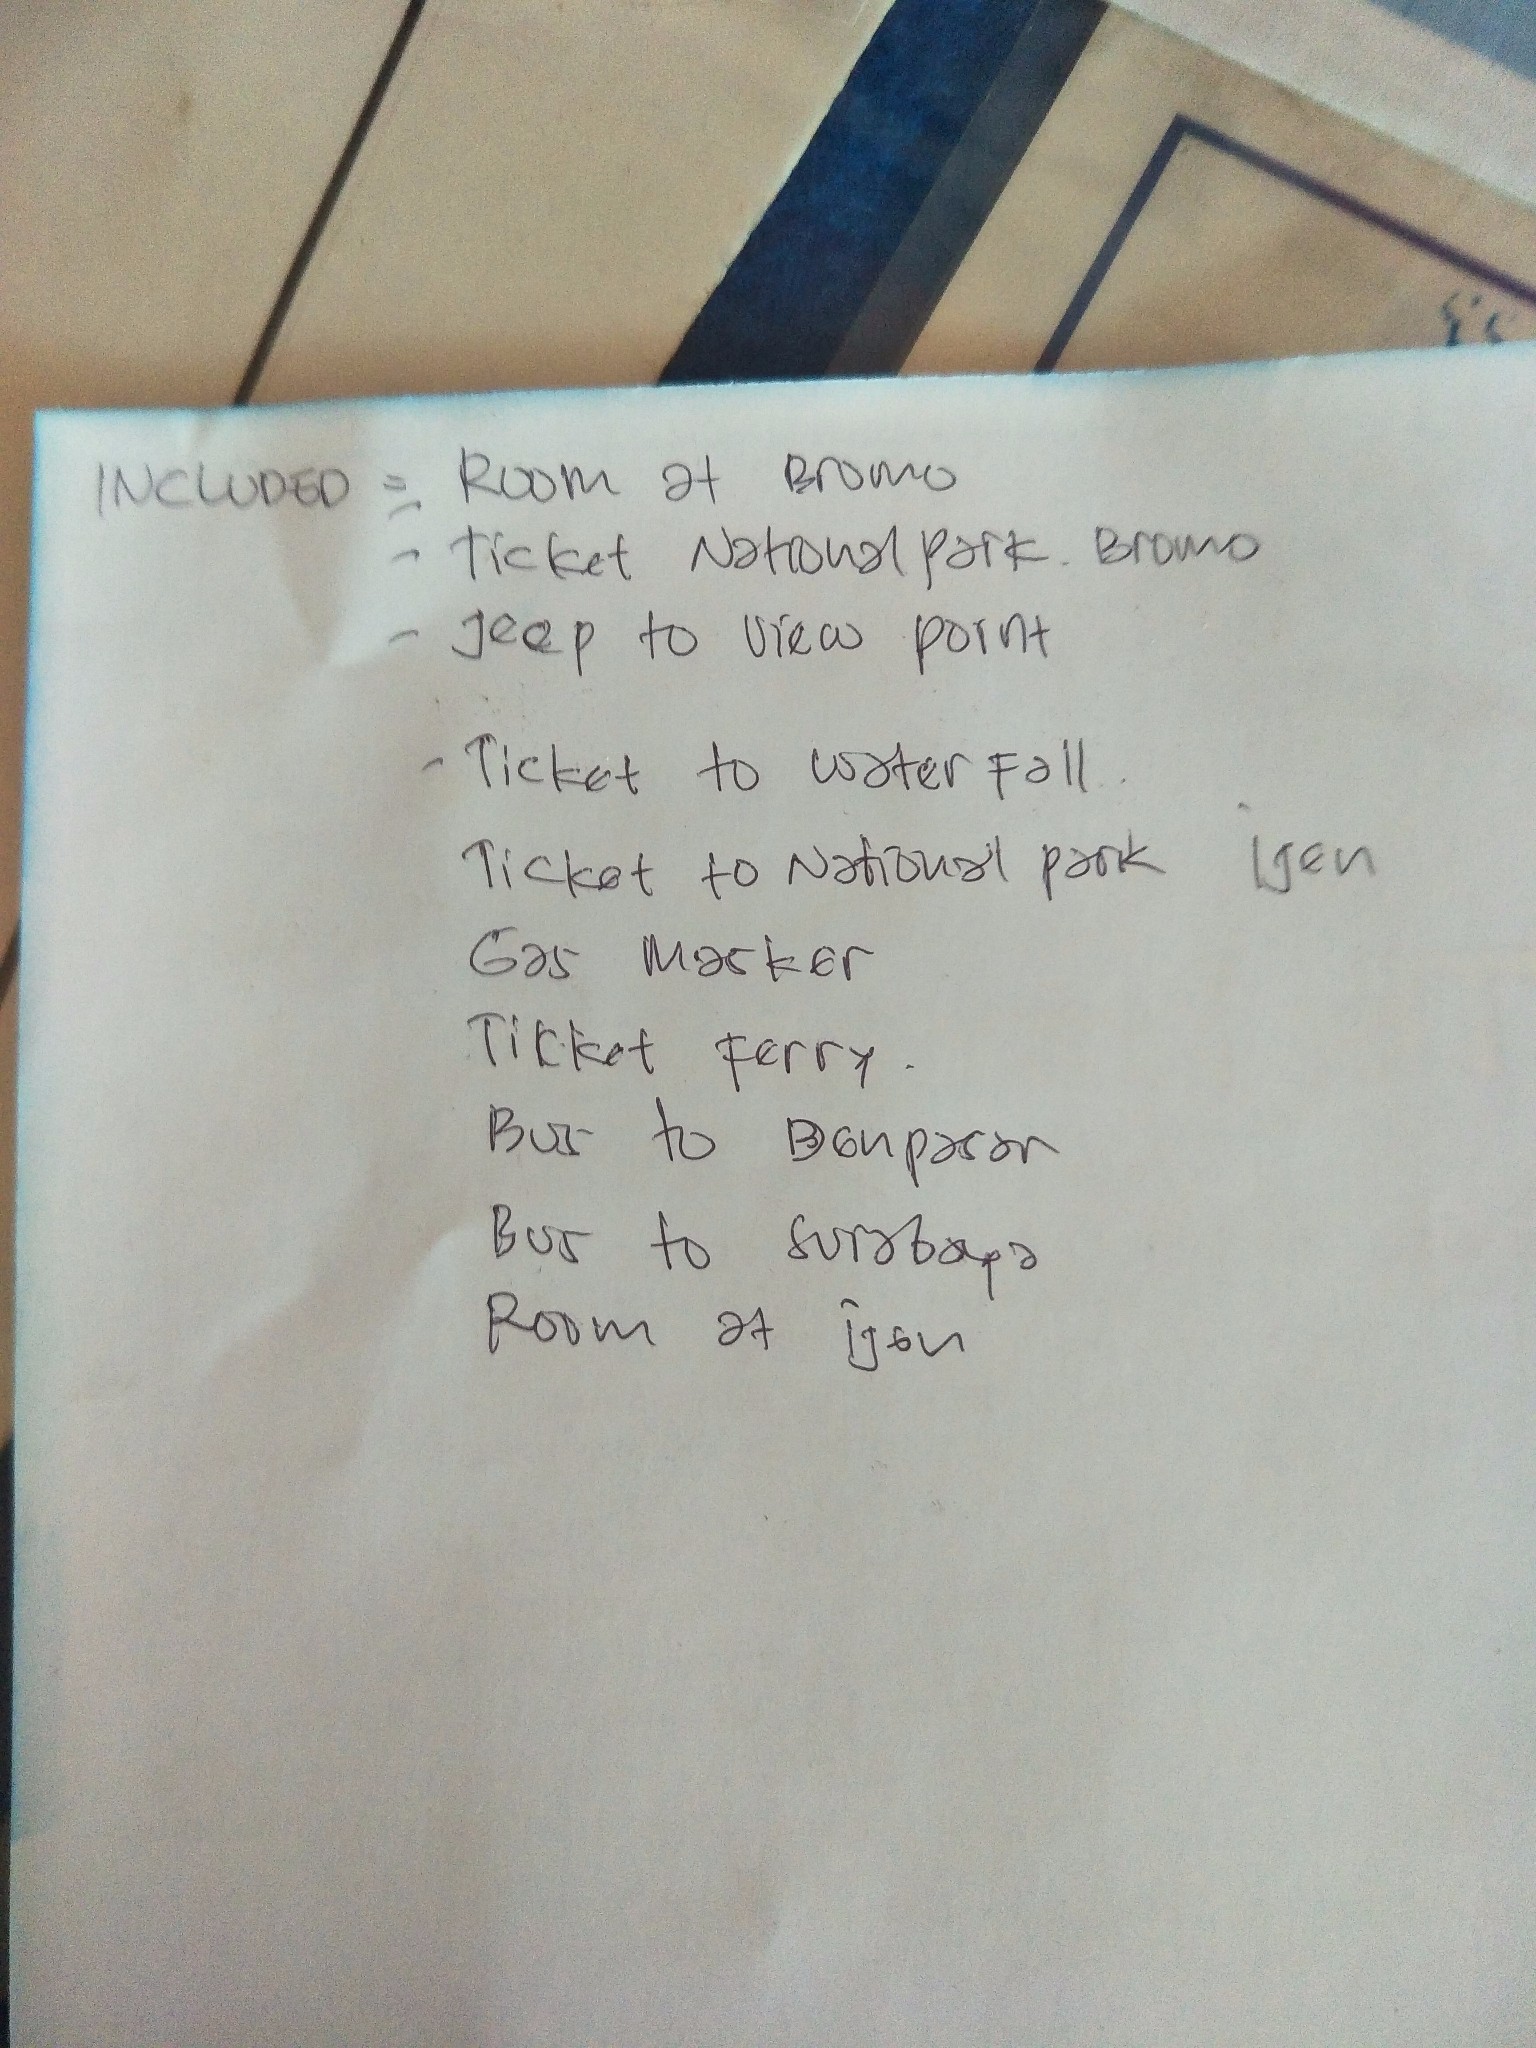 INCLUDED = Room at Bromo
- Ticket National park. Bromo
- Jeep to view point
- Ticket to water Fall.
Ticket to National park Ijen
Gas Masker
Ticket Ferry.
Bus to Denpasar
Bus to Surabaya
Room at ijen